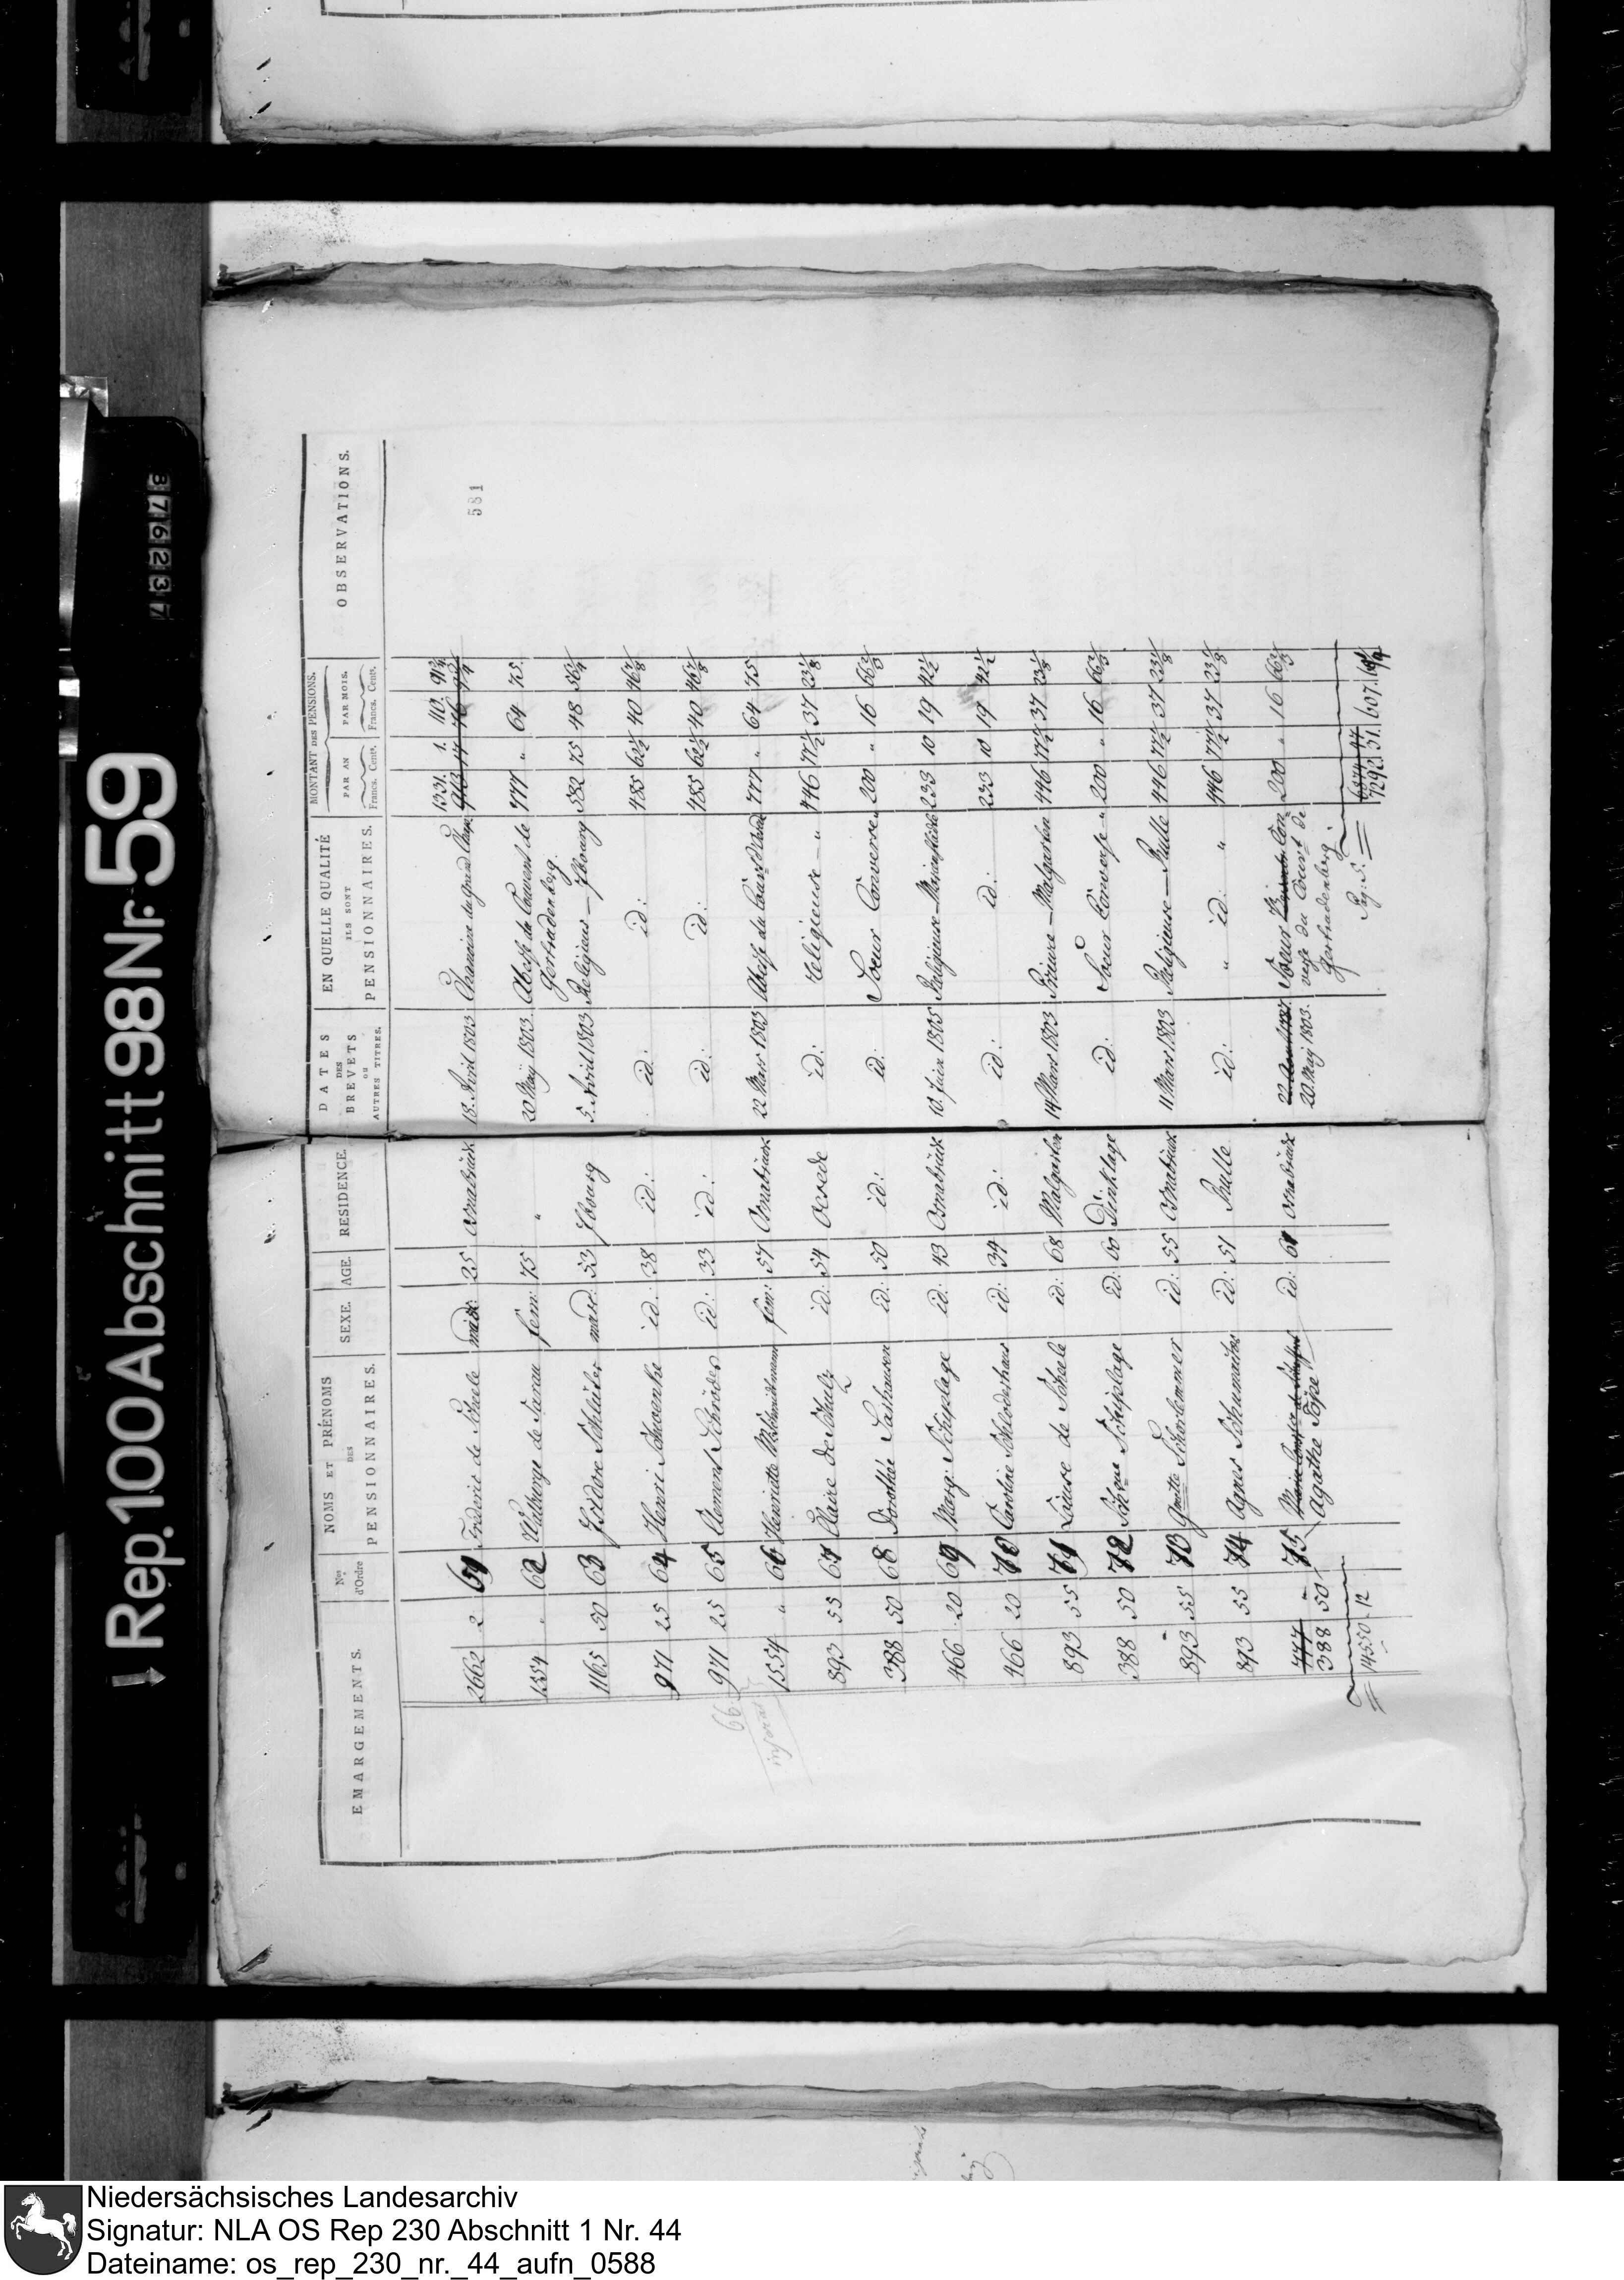 EMARGEMENTS. Nos d'Ordre NOMS ET PRÉNOMS DES PENSIONNAIRES. SEXE. AGE. RESIDENCE. DATES DES BREVETS OU AUTRES TITRES. EN QUELLE QUALITÉ ILS SONT PENSIONNAIRES. MONTANT DES PENSIONS. PAR AN Francs. Cents. PAR MOIS. Francs. Cents. OBSERVATIONS.
1331. 1. 110. 91 3/4
2662 2 61 Frederic de Schele masc: 25 Osnabrück 18. Avril 1803 Chanoine du grand Chap. 913 17 76
581
1554 " 62 Walberge de Sarau fem: 75 " 20 May 1803. Abesse du Couvent de Gertrudenberg. 777 " 64 75.
1165 50 63 Isidore Schlüter masc: 53 Jbourg 5. Avril 1803 Religieux — Jbourg 582 75 48 56 1/4
971 25 64 Henri Schwenke id: 38 id: id: id: 485 62 1/2 40 46 7/8
971 25 65 Clement Schröder id: 33 id: id: id: 485 62 1/2 40 46 7/8
66
1554 " 66 Henriette fem: 57 Osnabrück 22 Mars 1803 Abesse du Couv: d'Oesede 777 " 64 75
893 55 67 Claire de Schulz id: 54 Oesede id: Religieuse — " 446 77 1/2 37 23 1/8
388 50 68 Dorothée Sashausen id: 50 id: id: Soeur Converse " 200 " 16 66 2/3
466 20 69 Marg: Schiplage id: 43 Osnabrück 10. Juin 1805 Religieuse — Marienstädt 233 10 19 42 1/2
466 20 70 Caroline Schloderhaus id: 34 id: id: id: 233 10 19 42 1/2
893 55 71 Louise de Schele id: 68 Malgarten 14 Mars 1803 Prieure — Malgarten 446 77 1/2 37 23 1/8
388 50 72 Schiplage id: 60 Dinklage id: Soeur Converse " 200 " 16 66 2/3
893 55 73 Schorlemmer id: 55 Osnabrück 11 Mars 1803 Religieuse — Rulle 446 77 1/2 37 23 1/8
893 55 74 Agnes Schumacher id: 51 Rulle id: " id: " 446 77 1/2 37 23 1/8
777 " 75 id: 61 Osnabrück Soeur Con 200 " 16 66 2/3
388 50 Agathe Töpe 20. May 1803. verse du Couvt de
Gertrudenberg.
14550 12 Pag: 5. 6874 47
7292. 31. 607.
8 7 6 2 3 7
Rep. 100 Abschnitt 98 Nr. 59
Niedersächsisches Landesarchiv
Signatur: NLA OS Rep 230 Abschnitt 1 Nr. 44
Dateiname: os_rep_230_nr._44_aufn_0588